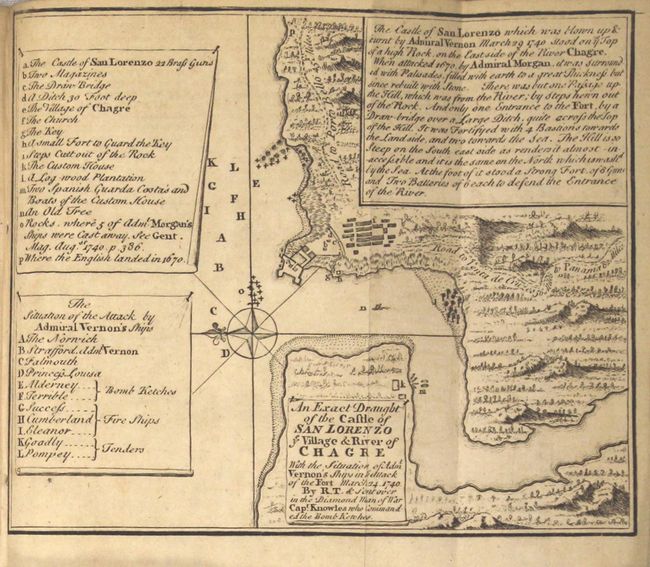 a The Castle of San Lorenzo 22 Brass Guns
b Two Magazines
c The Draw Bridge
d A Ditch 30 Foot deep
e The Village of Chagre
f The Church
g The Key
h A small Fort to Guard the Key
i Steps Cutt out of the Rock
k The Custom House
l A Log-wood Plantation
m Two Spanish Guarda Costa's and
Boats of the Custom House
n An Old Tree
o Rocks, where 5 of Adm.l Morgan's
Ships were Cast away. See Gent.
Mag. Aug.st 1740. p 386.
p Where the English landed in 1670.
The
Situation of the Attack by
Admiral Vernon's Ships
A The Norwich
B Strafford, Adm.l Vernon
C Falmouth
D Princess Louisa
E Alderney
F Terrible
Bomb Ketches
G Success
H Cumberland
I Eleanor
Fire Ships
K Goodly
L Pompey
Tenders
The Castle of San Lorenzo which was blown up &
burnt by Admiral Vernon March 29 1740 Stood on y.e Top
of a high Rock, on the East side of the River Chagre.
When attacked 1670, by Admiral Morgan, it was Surround
ed with Palisades, filled with earth to a great Thickness but
since rebuilt with Stone. There was but one Passage up
the Hill, which was from the River; by steps hewn out
of the Rock. And only one Entrance to the Fort, by a
Draw-bridge over a Large Ditch, quite across the Top
of the Hill. It was Fortifyed with 4 Bastions towards
the Land side, and two towards the Sea. The Hill is so
Steep on the South east side as renders it almost in-
accessable and it is the same on the North which is wash'd
by the Sea. At the foot of it stood a Strong Fort, of 8 Guns
and Two Batteries of 6 each to defend the Entrance
of the River.
L
E
K
G
F
C
H
I
A
B
O
C
D
Road to
to Panama
An Exact Draught
of the Castle of
SAN LORENZO
y.e Village & River of
CHAGRE
With the Situation of Adm.l
Vernon's Ships in y.e Attack
of the Fort March 24. 1740.
By R.T. & Sent over
in the Diamond Man of War
Cap.t Knowles who Command
ed the Bomb Ketches.